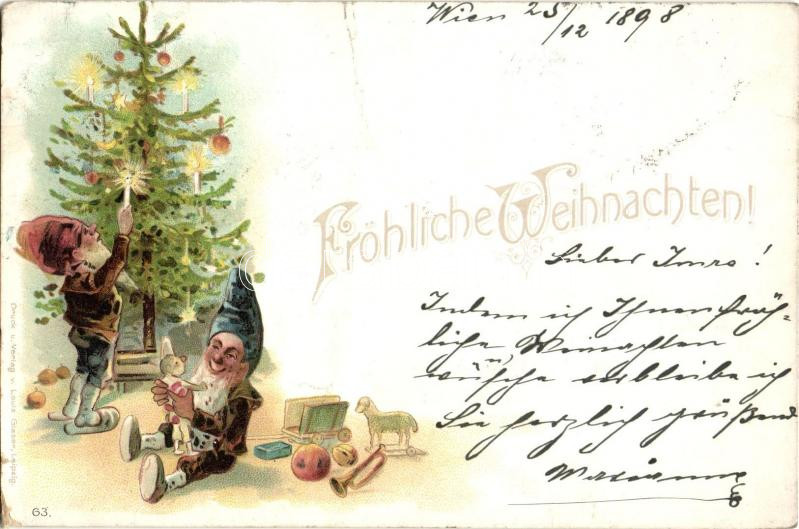 Wien 25/12 1898
Fröhliche Weihnachten!
Lieber Imre!
Indem ich Ihnen fröh-
liche Weinachten
wünsche verbleibe ich
Sie herzlich grüßend
Marianne
Druck u. Verlag v. Louis Glaser, Leipzig.
63.